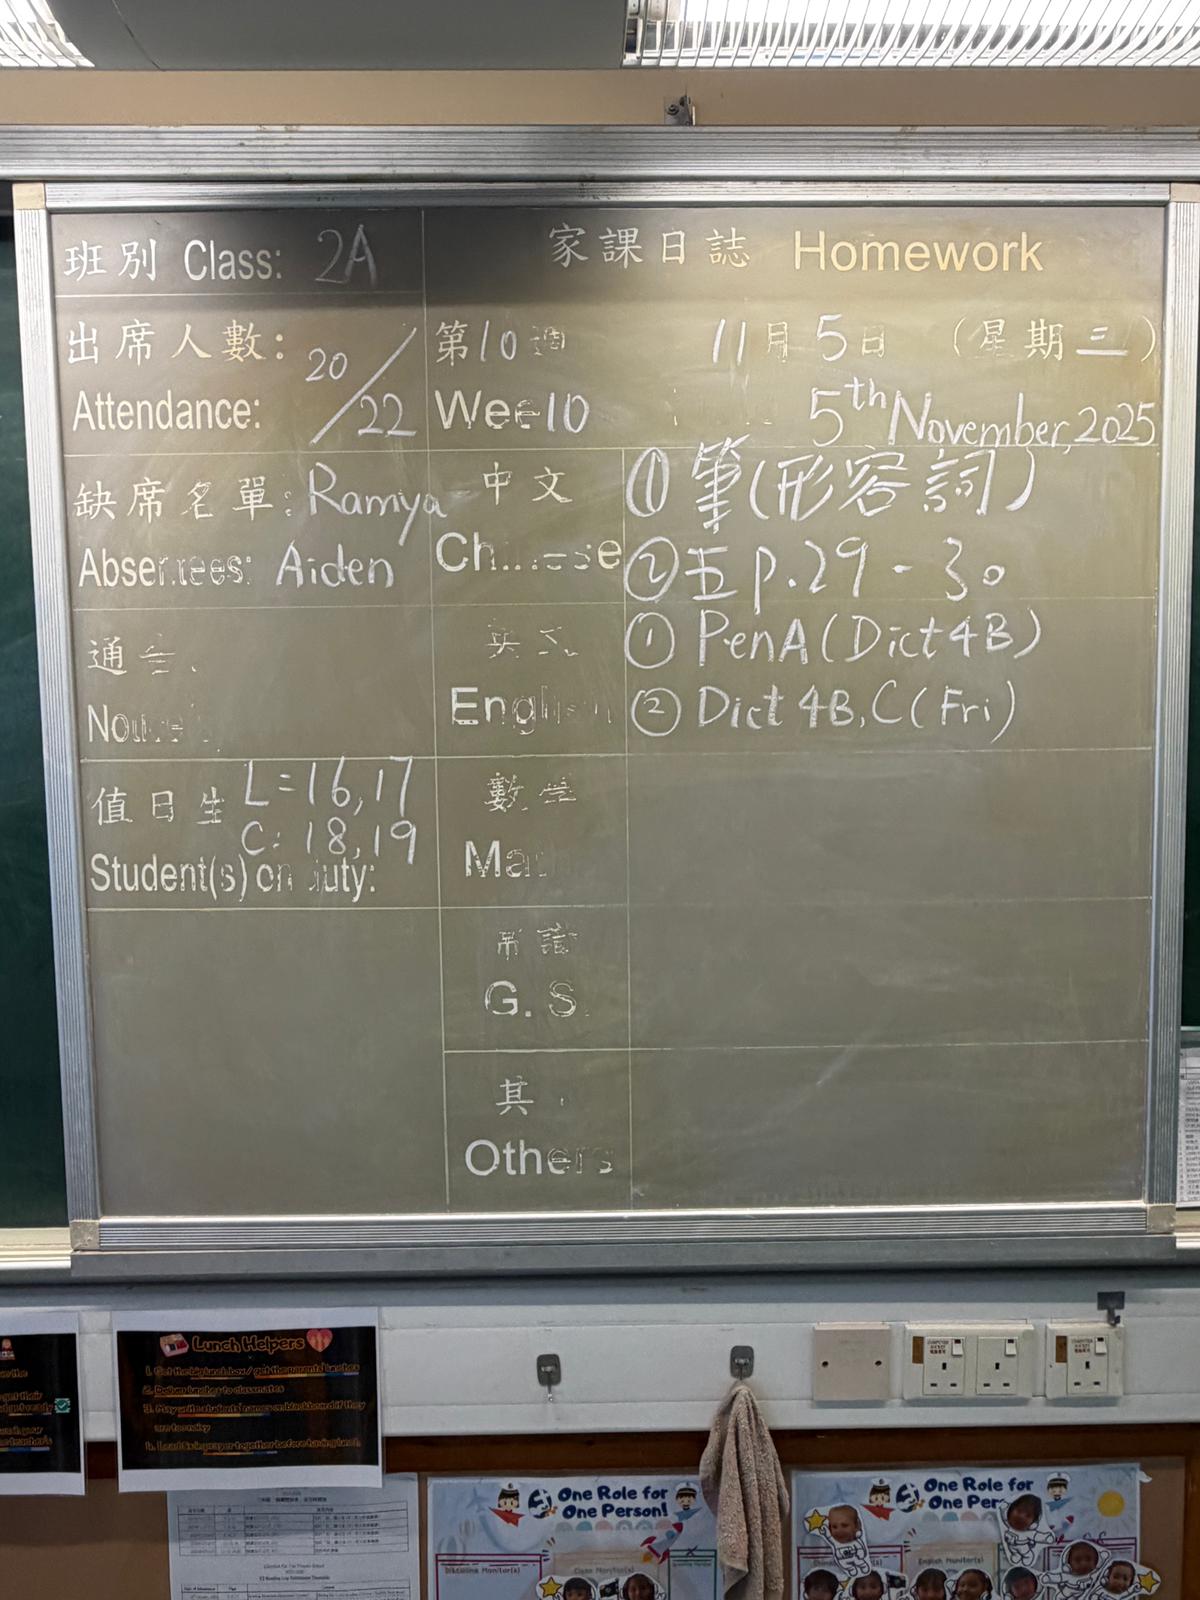 班別 Class: 2A
家課日誌 Homework
出席人數: 20/22
Attendance:
第10週 11月5日 (星期三)
Wee10 5th November, 2025
缺席名單: Ramya
Absentees: Aiden
中文 ① 筆(形容詞)
Chinese ② 五 p.29-30
通告
Notice
英文 ① PenA (Dict 4B)
English ② Dict 4B, C (Fri)
值日生 L=16,17
C: 18,19
Student(s) on duty:
數學
Math
常識
G. S.
其
Others
Lunch Helpers
1. Get the big lunch box / get the parents' lunches
2. Deliver lunches to classmates
3. May write students' names on blackboard if they
are too noisy
4. Lead us in prayer together before having lunch.
One Role for
One Person!
Discipline Monitor(s)
One Role for
One Per
English Monitor(s)